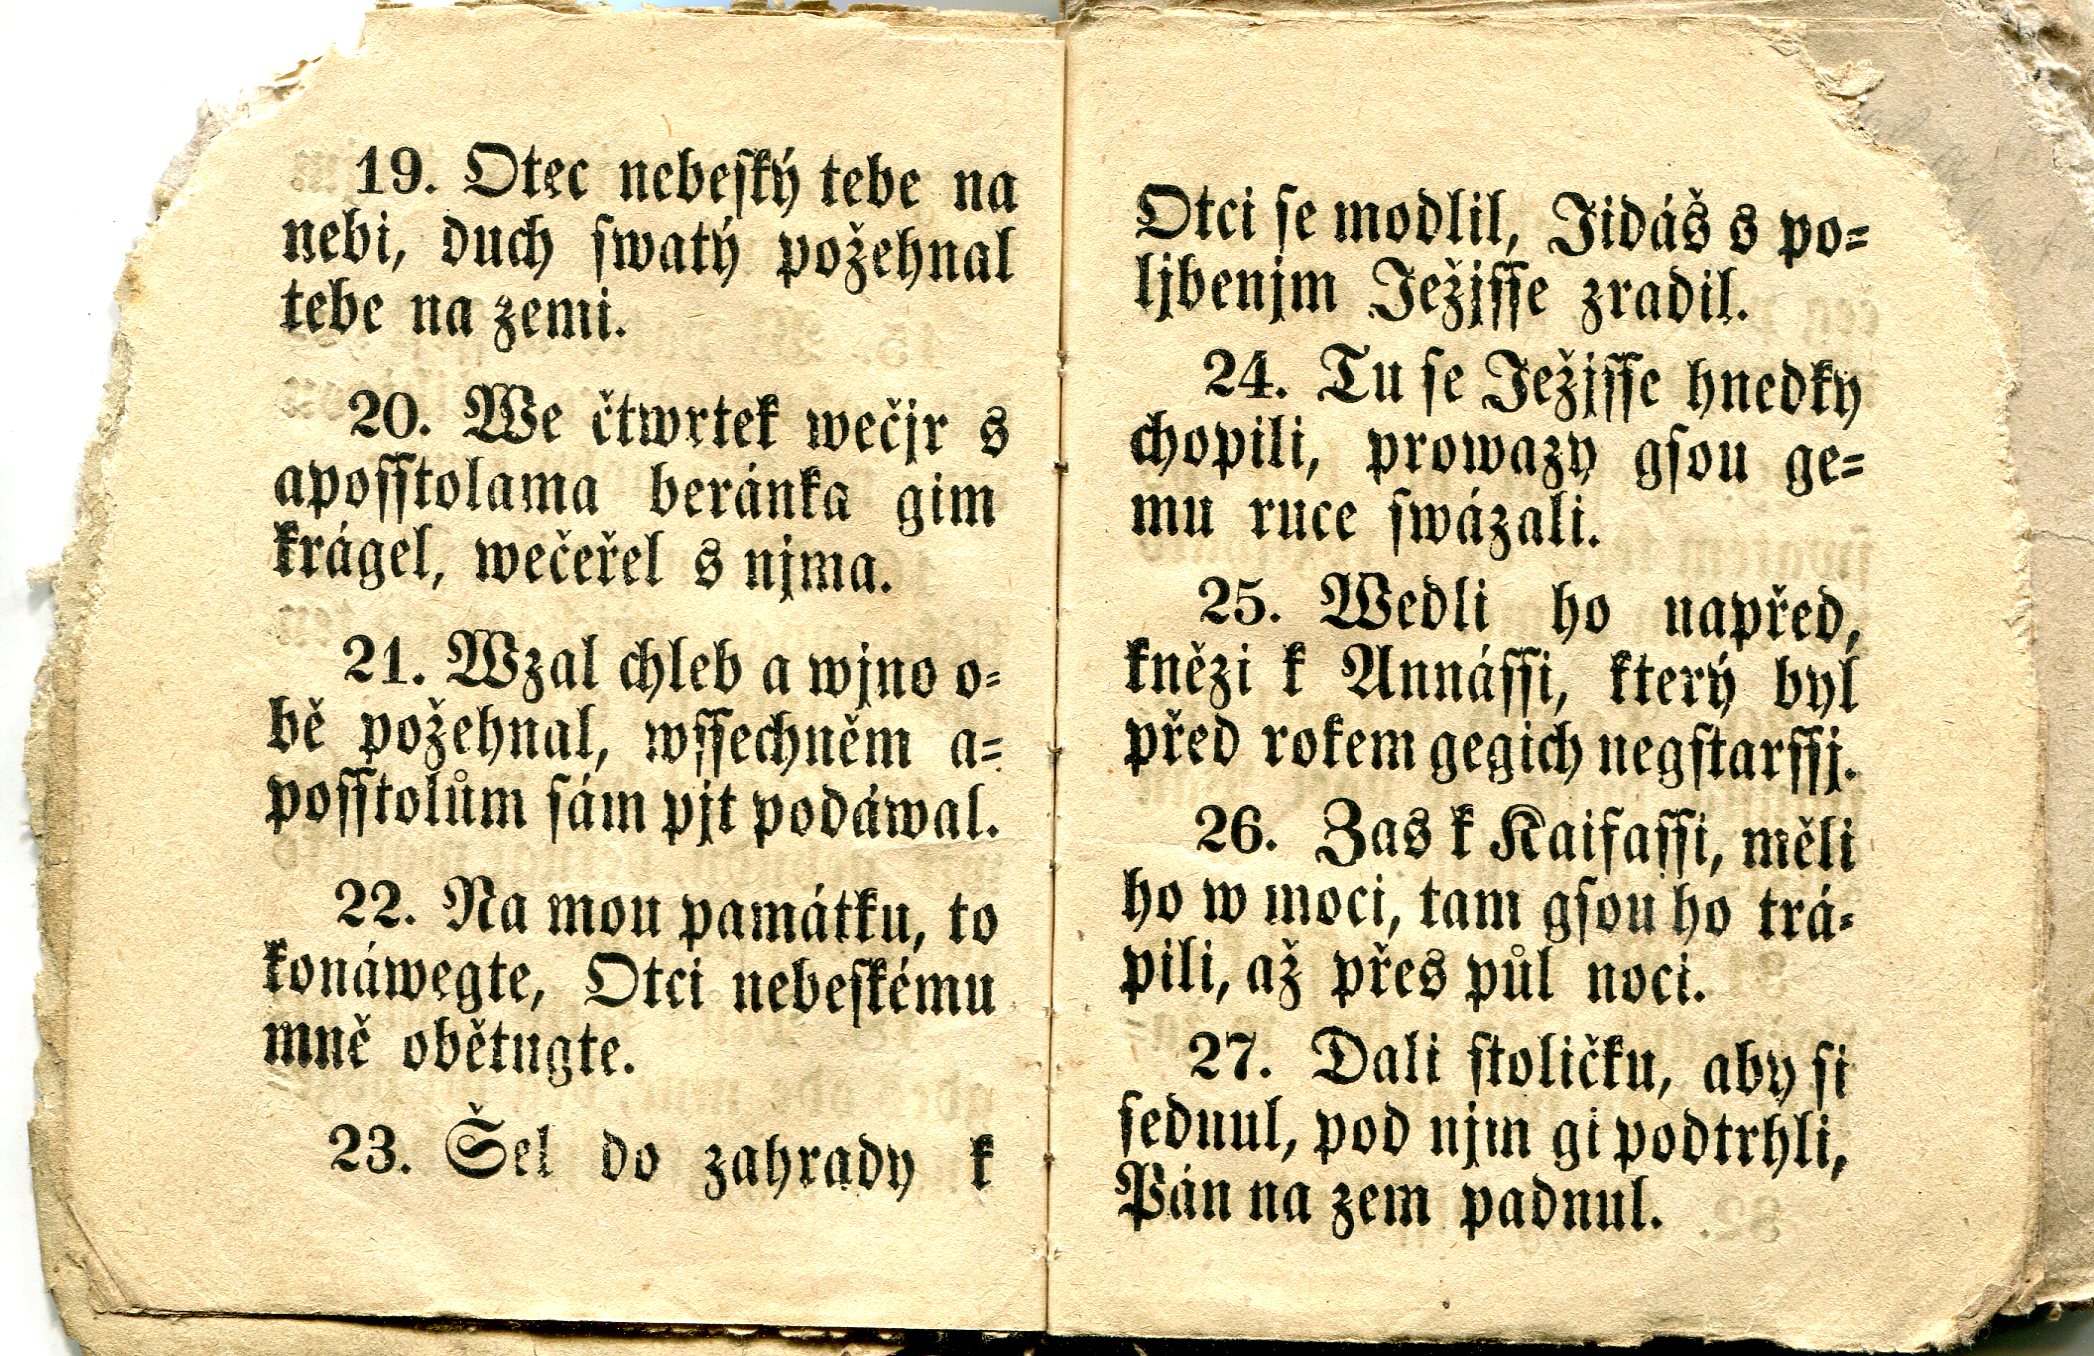 19. Otec nebeſký tebe na
nebi, duch ſwatý požehnal
tebe na zemi.
20. We čtwrtek wečjr s
apoſſtolama beránka gim
krágel, wečeřel s njma.
21. Wzal chleb a wjno o⸗
bě požehnal, wſſechněm a⸗
poſſtolům ſám pjt podáwal.
22. Na mou památku, to
konáwegte, Otci nebeſkému
mně obětugte.
23. Šel do zahrady k
Otci ſe modlil, Jidáš s po⸗
ljbenjm Ježjſſe zradil.
24. Tu ſe Ježjſſe hnedky
chopili, prowazy gſou ge⸗
mu ruce ſwázali.
25. Wedli ho napřed,
knězi k Annáſſi, který byl
před rokem gegich negſtarſſj.
26. Zas k Kaifaſſi, měli
ho w moci, tam gſou ho trá⸗
pili, až přes půl noci.
27. Dali ſtoličku, aby ſi
ſednul, pod njm gi podtrhli,
Pán na zem padnul.